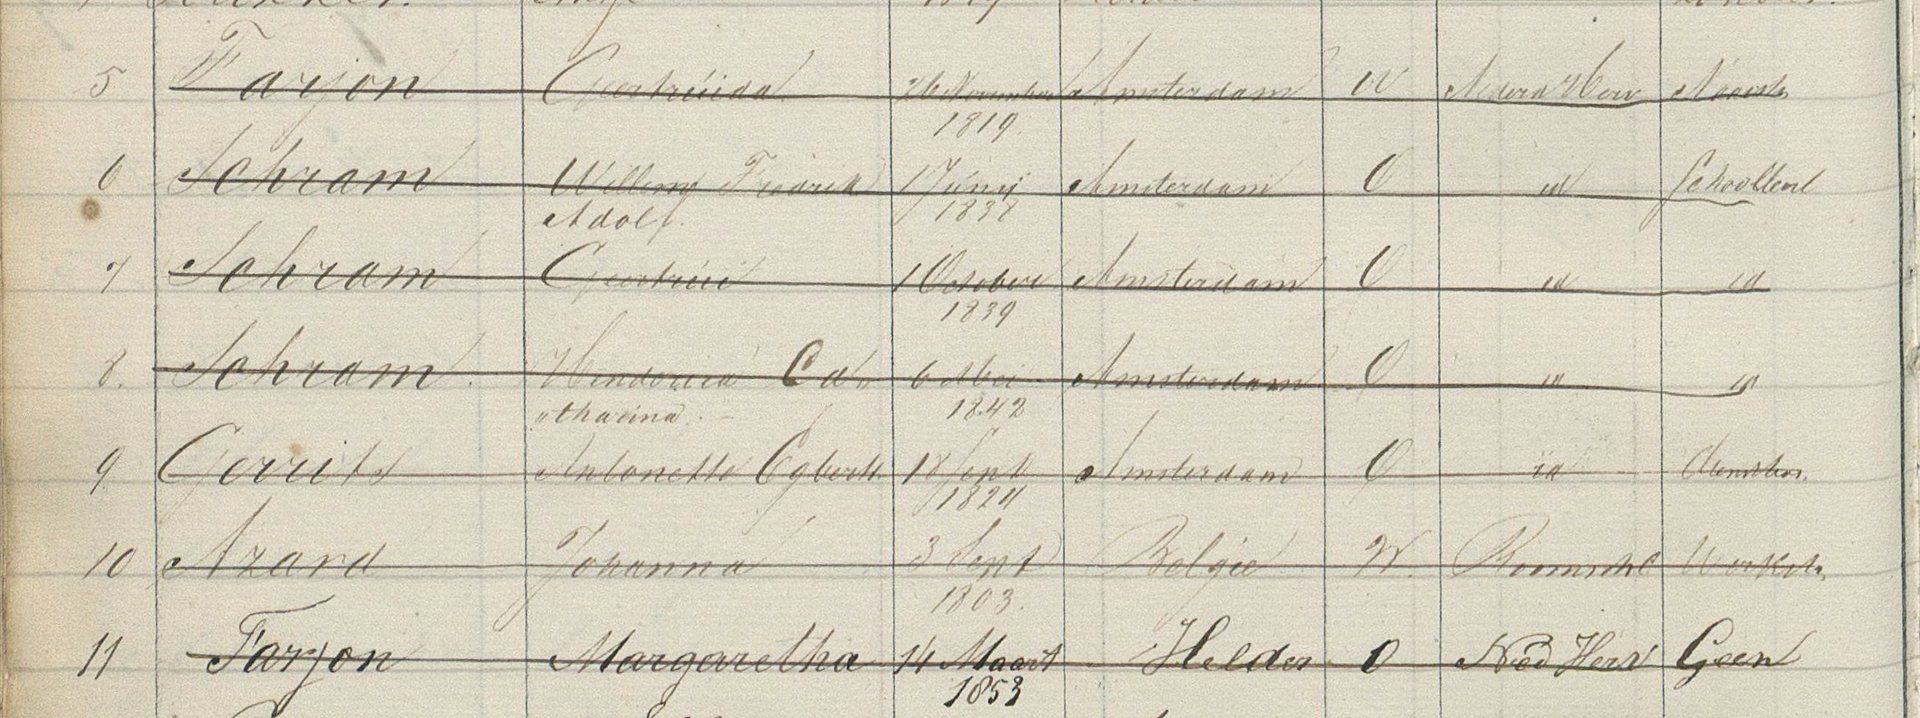 5 Farjon Geertruida 26 November Amsterdam W Nederd Herv Naaister
1819.
6 Schram Willem Fredrik 1 Junij Amsterdam O id Schoollent
Adolf. 1838
7 Schram Geertrui 1 October Amsterdam O id id
1839
8. Schram. Hendorica Ca„ 6 Mei Amsterdam O id id
„tharina. 1842
9 Gerrits Antonette Egbertt. 18 Sept Amsterdam O id
1824
10 Azard Johanna 3 Sept Belgie W. Roomsch C Werkstr
1803.
11 Farjon Margaretha 14 Maart Helder O Ned Herv Geen
1853